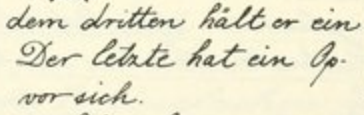 dem dritten hält er ein
Der letzte hat ein Op-
vor sich.